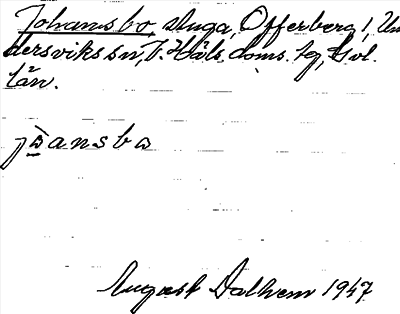 Johansbo, stuga, Offerberg, Un
dersviks sn, V. Häls. doms. sg, Gvl.
län.
jòansbo
August Dalhem 1947